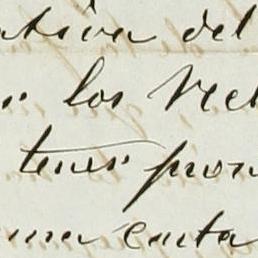 ativa del
los Nel
tener pron
una cuta